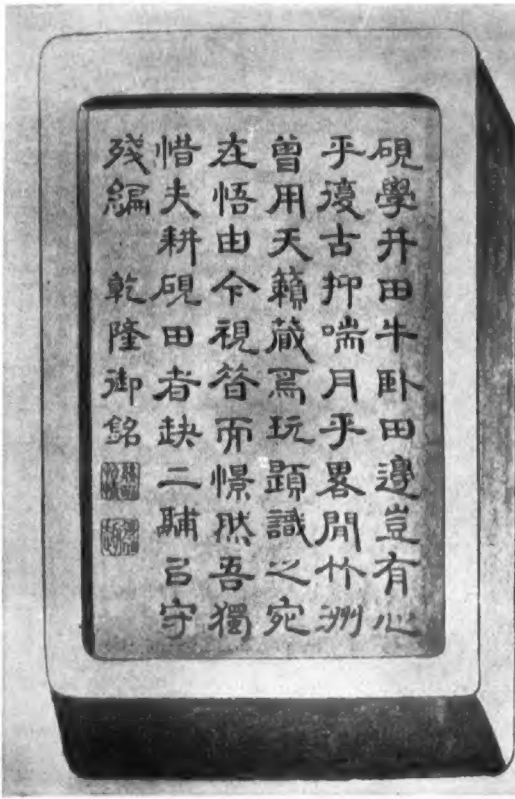 硯學井田牛卧田邊豈有心
乎復古抑喘月乎畧聞竹洲
曾用天籟蔵焉玩題識之宛
在悟由今視昔而憬然吾獨
惜夫耕硯田者缺二鬴㠯守
殘編 乾隆御銘